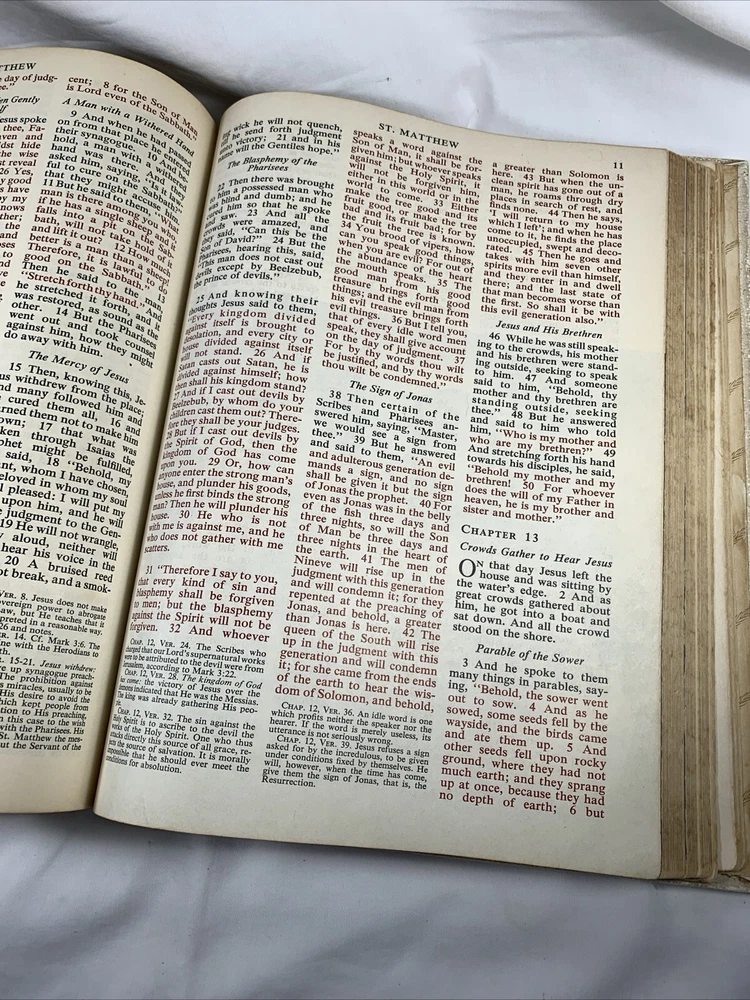 TTHEW
e day of judg-
e."
en Gently
lf
esus spoke
thee, Fa-
aven and
dst hide
he wise
reveal
26 Yes,
y good
s have
by my
nows
ther;
cent; 8 for the Son of Man
is Lord even of the Sabbath."
A Man with a Withered Hand
9 And when he had passed
on from that place he entered
their synagogue. 10 And behold, a man with a withered
asked him, saying, "Is it lawful to cure on the Sabbath?"
that they might accuse him.
11 But he said to them, "What
man is there among you who,
if he has a single sheep and it
falls into a pit on the Sabbath, will not take hold of it
and lift it out? 12 How much
better is a man than a sheep!
Therefore, it is lawful to do
good on the Sabbath." 13
Then he said to the man,
"Stretch forth thy hand." And
he stretched it forth, and it
was restored, as sound as the
other. 14 But the Pharisees
went out and took counsel
against him, how they might
do away with him.
The Mercy of Jesus
15 Then, knowing this, Je-
us withdrew from the place;
nd many followed him and
e cured them all, 16 and
arned them not to make him
own; 17 that what was
oken through Isaias the
ophet might be fulfilled,
said, 18 "Behold, my
nt, whom I have chosen,
eloved in whom my soul
l pleased: I will put my
upon him, and he will
e judgment to the Gen-
19 He will not wrangle,
y aloud, neither will
hear his voice in the
20 A bruised reed
ot break, and a smok-
VER. 8. Jesus does not make
sovereign power to abrogate
Law, but He teaches that it
rpreted in a reasonable way.
26 and notes.
R. 14. Cf. Mark 3:6. The
ne with the Herodians to
R. 15-21. Jesus withdrew:
e up synagogue preach-
The prohibition against
miracles, usually to be
His desire to avoid the
hich kept people from
tion to His preaching,
n this case to the wish
with the Pharisees. His
t. Matthew the mes-
ut the Servant of the
ST. MATTHEW
11
ing wick he will not quench,
till he send forth judgment
unto victory; 21 and in his
name will the Gentiles hope."
The Blasphemy of the
Pharisees
22 Then there was brought
to him a possessed man who
was blind and dumb; and he
cured him so that he spoke
and saw. 23 And all the
crowds were amazed, and
they said, "Can this be the
Son of David?" 24 But the
Pharisees, hearing this, said,
"This man does not cast out
devils except by Beelzebub,
the prince of devils."
25 And knowing their
thoughts Jesus said to them,
"Every kingdom divided
against itself is brought to
desolation, and every city or
house divided against itself
will not stand. 26 And if
Satan casts out Satan, he is
divided against himself; how
then shall his kingdom stand?
27 And if I cast out devils by
Beelzebub, by whom do your
children cast them out? There-
fore they shall be your judges.
28 But if I cast out devils by
the Spirit of God, then the
kingdom of God has come
upon you. 29 Or, how can
anyone enter the strong man's
house, and plunder his goods,
unless he first binds the strong
man? Then he will plunder his
house. 30 He who is not
with me is against me, and he
who does not gather with me
scatters.
31 "Therefore I say to you,
that every kind of sin and
blasphemy shall be forgiven
to men; but the blasphemy
against the Spirit will not be
forgiven. 32 And whoever
CHAP. 12, VER. 24. The Scribes who
charged that our Lord's supernatural works
were to be attributed to the devil were from
Jerusalem, according to Mark 3:22.
CHAP. 12, VER. 28. The kingdom of God
has come: the victory of Jesus over the
demons indicated that He was the Messias.
The king was already gathering His peo-
ple.
CHAP. 12, VER. 32. The sin against the
Holy Spirit is to ascribe to the devil the
works of the Holy Spirit. One who thus
attacks directly this source of all grace, re-
jects the source of salvation. It is morally
impossible that he should ever meet the
conditions for absolution.
speaks a word against the
Son of Man, it shall be for-
given him; but whoever speaks
against the Holy Spirit, it
will not be forgiven him,
either in this world or in the
world to come. 33 Either
make the tree good and its
fruit good, or make the tree
bad and its fruit bad; for by
the fruit the tree is known.
34 You brood of vipers, how
can you speak good things,
when you are evil? For out of
the abundance of the heart
the mouth speaks. 35 The
good man from his good
treasure brings forth good
things; and the evil man from
his evil treasure brings forth
evil things. 36 But I tell you,
that of every idle word men
speak, they shall give account
on the day of judgment. 37
For by thy words thou wilt
be justified, and by thy words
thou wilt be condemned."
The Sign of Jonas
38 Then certain of the
Scribes and Pharisees an-
swered him, saying, "Master,
we would see a sign from
thee." 39 But he answered
and said to them, "An evil
and adulterous generation de-
mands a sign, and no sign
shall be given it but the sign
of Jonas the prophet. 40 For
even as Jonas was in the belly
of the fish three days and
three nights, so will the Son
of Man be three days and
three nights in the heart of
the earth. 41 The men of
Nineve will rise up in the
judgment with this generation
and will condemn it; for they
repented at the preaching of
Jonas, and behold, a greater
than Jonas is here. 42 The
queen of the South will rise
up in the judgment with this
generation and will condemn
it; for she came from the ends
of the earth to hear the wis-
dom of Solomon, and behold,
CHAP. 12, VER. 36. An idle word is one
which profits neither the speaker nor the
hearer. If the word is merely useless, its
utterance is not seriously wrong.
CHAP. 12, VER. 39. Jesus refuses a sign
asked for by the incredulous, to be given
under conditions fixed by themselves. He
will, however, when the time has come,
give them the sign of Jonas, that is, the
Resurrection.
a greater than Solomon is
here. 43 But when the un-
clean spirit has gone out of a
man, he roams through dry
places in search of rest, and
finds none. 44 Then he says,
'I will return to my house
which I left'; and when he has
come to it, he finds the place
unoccupied, swept and deco-
rated. 45 Then he goes and
takes with him seven other
spirits more evil than himself,
and they enter in and dwell
there; and the last state of
that man becomes worse than
the first. So shall it be with
this evil generation also."
Jesus and His Brethren
46 While he was still speak-
ing to the crowds, his mother
and his brethren were stand-
ing outside, seeking to speak
to him. 47 And someone
said to him, "Behold, thy
mother and thy brethren are
standing outside, seeking
thee." 48 But he answered
and said to him who told
him, "Who is my mother and
who are my brethren?" 49
And stretching forth his hand
towards his disciples, he said,
"Behold my mother and my
brethren! 50 For whoever
does the will of my Father in
heaven, he is my brother and
sister and mother."
CHAPTER 13
Crowds Gather to Hear Jesus
ON that day Jesus left the
house and was sitting by
the water's edge. 2 And as
great crowds gathered about
him, he got into a boat and
sat down. And all the crowd
stood on the shore.
Parable of the Sower
3 And he spoke to them
many things in parables, say-
ing, "Behold, the sower went
out to sow. 4 And as he
sowed, some seeds fell by the
wayside, and the birds came
and ate them up. 5 And
other seeds fell upon rocky
ground, where they had not
much earth; and they sprang
up at once, because they had
no depth of earth; 6 but